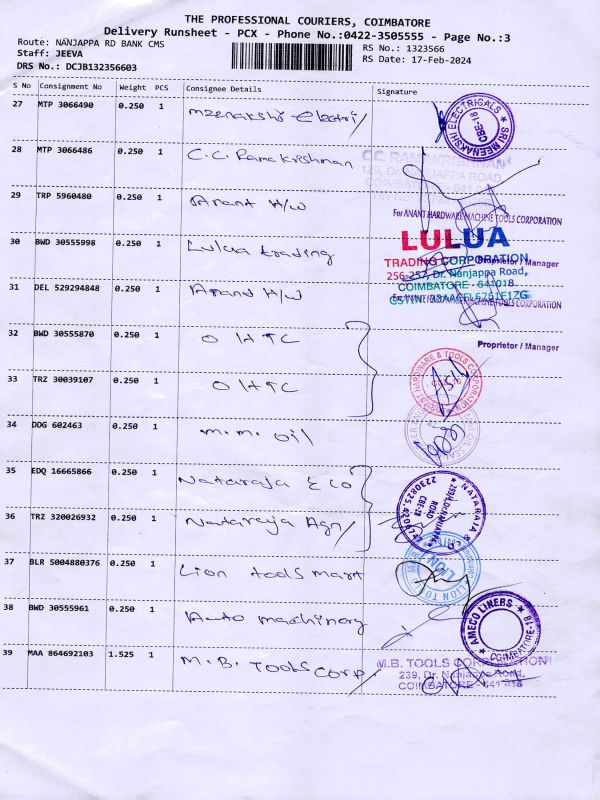 THE PROFESSIONAL COURIERS, COIMBATORE
Delivery Runsheet - PCX - Phone No.:0422-3505555 - Page No.:3
Route: NANJAPPA RD BANK CMS
Staff: JEEVA
DRS No.: DCJB132356603
RS No.: 1323566
RS Date: 17-Feb-2024
S No Consignment No Weight PCS Consignee Details Signature
27 MTP 3066490 0.250 1 meenakshi electri
SRI MEENAKSHI ELECTRICALS
CBE-18
28 MTP 3066486 0.250 1 C.C. Ramakrishnan
C.C. RAMAKRISHNAN
29 TRP 5960480 0.250 1 Anant H/W
For ANANT HARDWARE MACHINE TOOLS CORPORATION
30 BWD 30555998 0.250 1 Lulua trading
LULUA
TRADING CORPORATION
Proprietor / Manager
256-257, Dr. Nanjappa Road,
COIMBATORE - 641018
31 DEL 529294848 0.250 1 Anand H/W
32 BWD 30555870 0.250 1 O H T C
Proprietor / Manager
33 TRZ 30039107 0.250 1 O H T C
HARDWARE & TOOLS CORPORATION
34 DDG 602463 0.250 1 M.M. Oil
35 EDQ 16665866 0.250 1 Nataraja & Co
NATARAJA & CO
36 TRZ 320026932 0.250 1 Nataraja Agn/
37 BLR 5004880376 0.250 1 Lion tools mart
LION
38 BWD 30555961 0.250 1 Auto machinery
AMECO LINERS
COIMBATORE-18
39 MAA 864692103 1.525 1 M.B. Tools corp/
M.B. TOOLS CORPORATION
239, Dr. Nanjappa Road,
COIMBATORE - 641 018